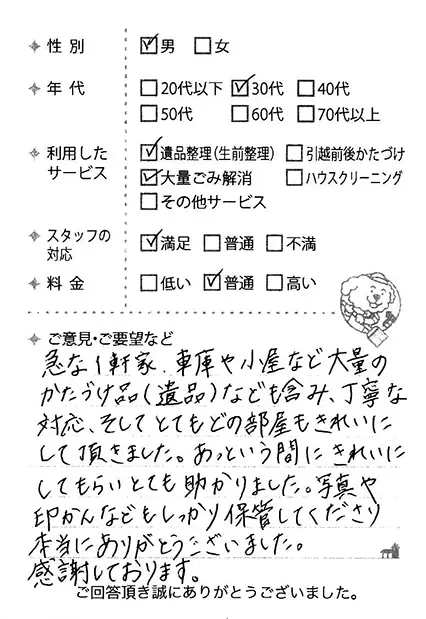 性別 ☑男 ☐女
年代 ☐20代以下 ☑30代 ☐40代
☐50代 ☐60代 ☐70代以上
利用した ☑遺品整理(生前整理) ☐引越前後かたづけ
サービス ☑大量ごみ解消 ☐ハウスクリーニング
☐その他サービス
スタッフの
対応 ☑満足 ☐普通 ☐不満
料金 ☐低い ☑普通 ☐高い
ご意見・ご要望など
急な1軒家、車庫や小屋など大量の
かたづけ品(遺品)なども含み、丁寧な
対応、そしてとてもどの部屋もきれいに
して頂きました。あっという間にきれいに
してもらいとても助かりました。写真や
印かんなどもしっかり保管してくださり
本当にありがとうございました。
感謝しております。
ご回答頂き誠にありがとうございました。